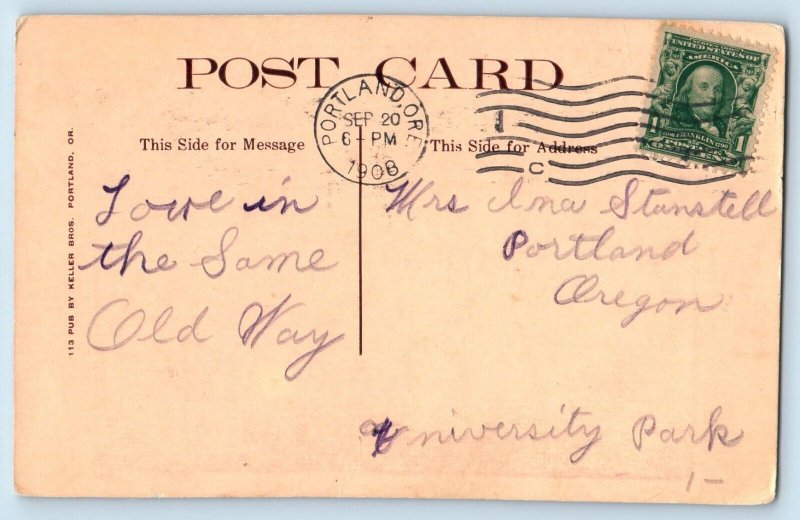 POST CARD
PORTLAND, ORE.
SEP 20
6-PM
1908
1
C
UNITED STATES OF
AMERICA
1 1
This Side for Message
This Side for Address
113 PUB BY KELLER BROS. PORTLAND, OR.
Love in
the Same
Old Way
Mrs Ina Stanstell
Portland
Oregon
University Park
1-